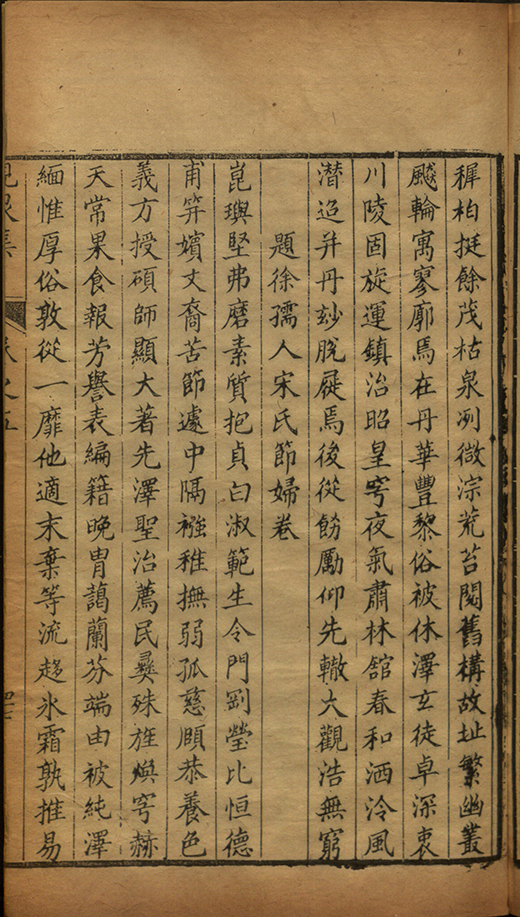 穉柏挺餘茂枯泉冽微淙荒苔閟舊構故址繁幽叢
飇輪寓寥廓焉在丹華豐黎俗被休澤玄徒卓深衷
川陵固旋運鎮治昭皇穹夜氣肅林館春和洒泠風
潛迨并丹玅脫屣焉後從飭勵仰先轍大觀浩無窮
題徐孺人宋氏節婦卷
崑璵堅弗磨素質抱貞白淑範生令門劉瑩比恒德
甫笄嬪文裔苦節遽中隔襁稚撫弱孤慈頤恭養色
義方授碩師顯大著先澤聖治薦民彝殊旌煥穹赫
天常果食報芳譽表編籍晚胄藹蘭芬端由被純澤
緬惟厚俗敦從一靡他適末棄等流趍氷霜孰推易
卷之五